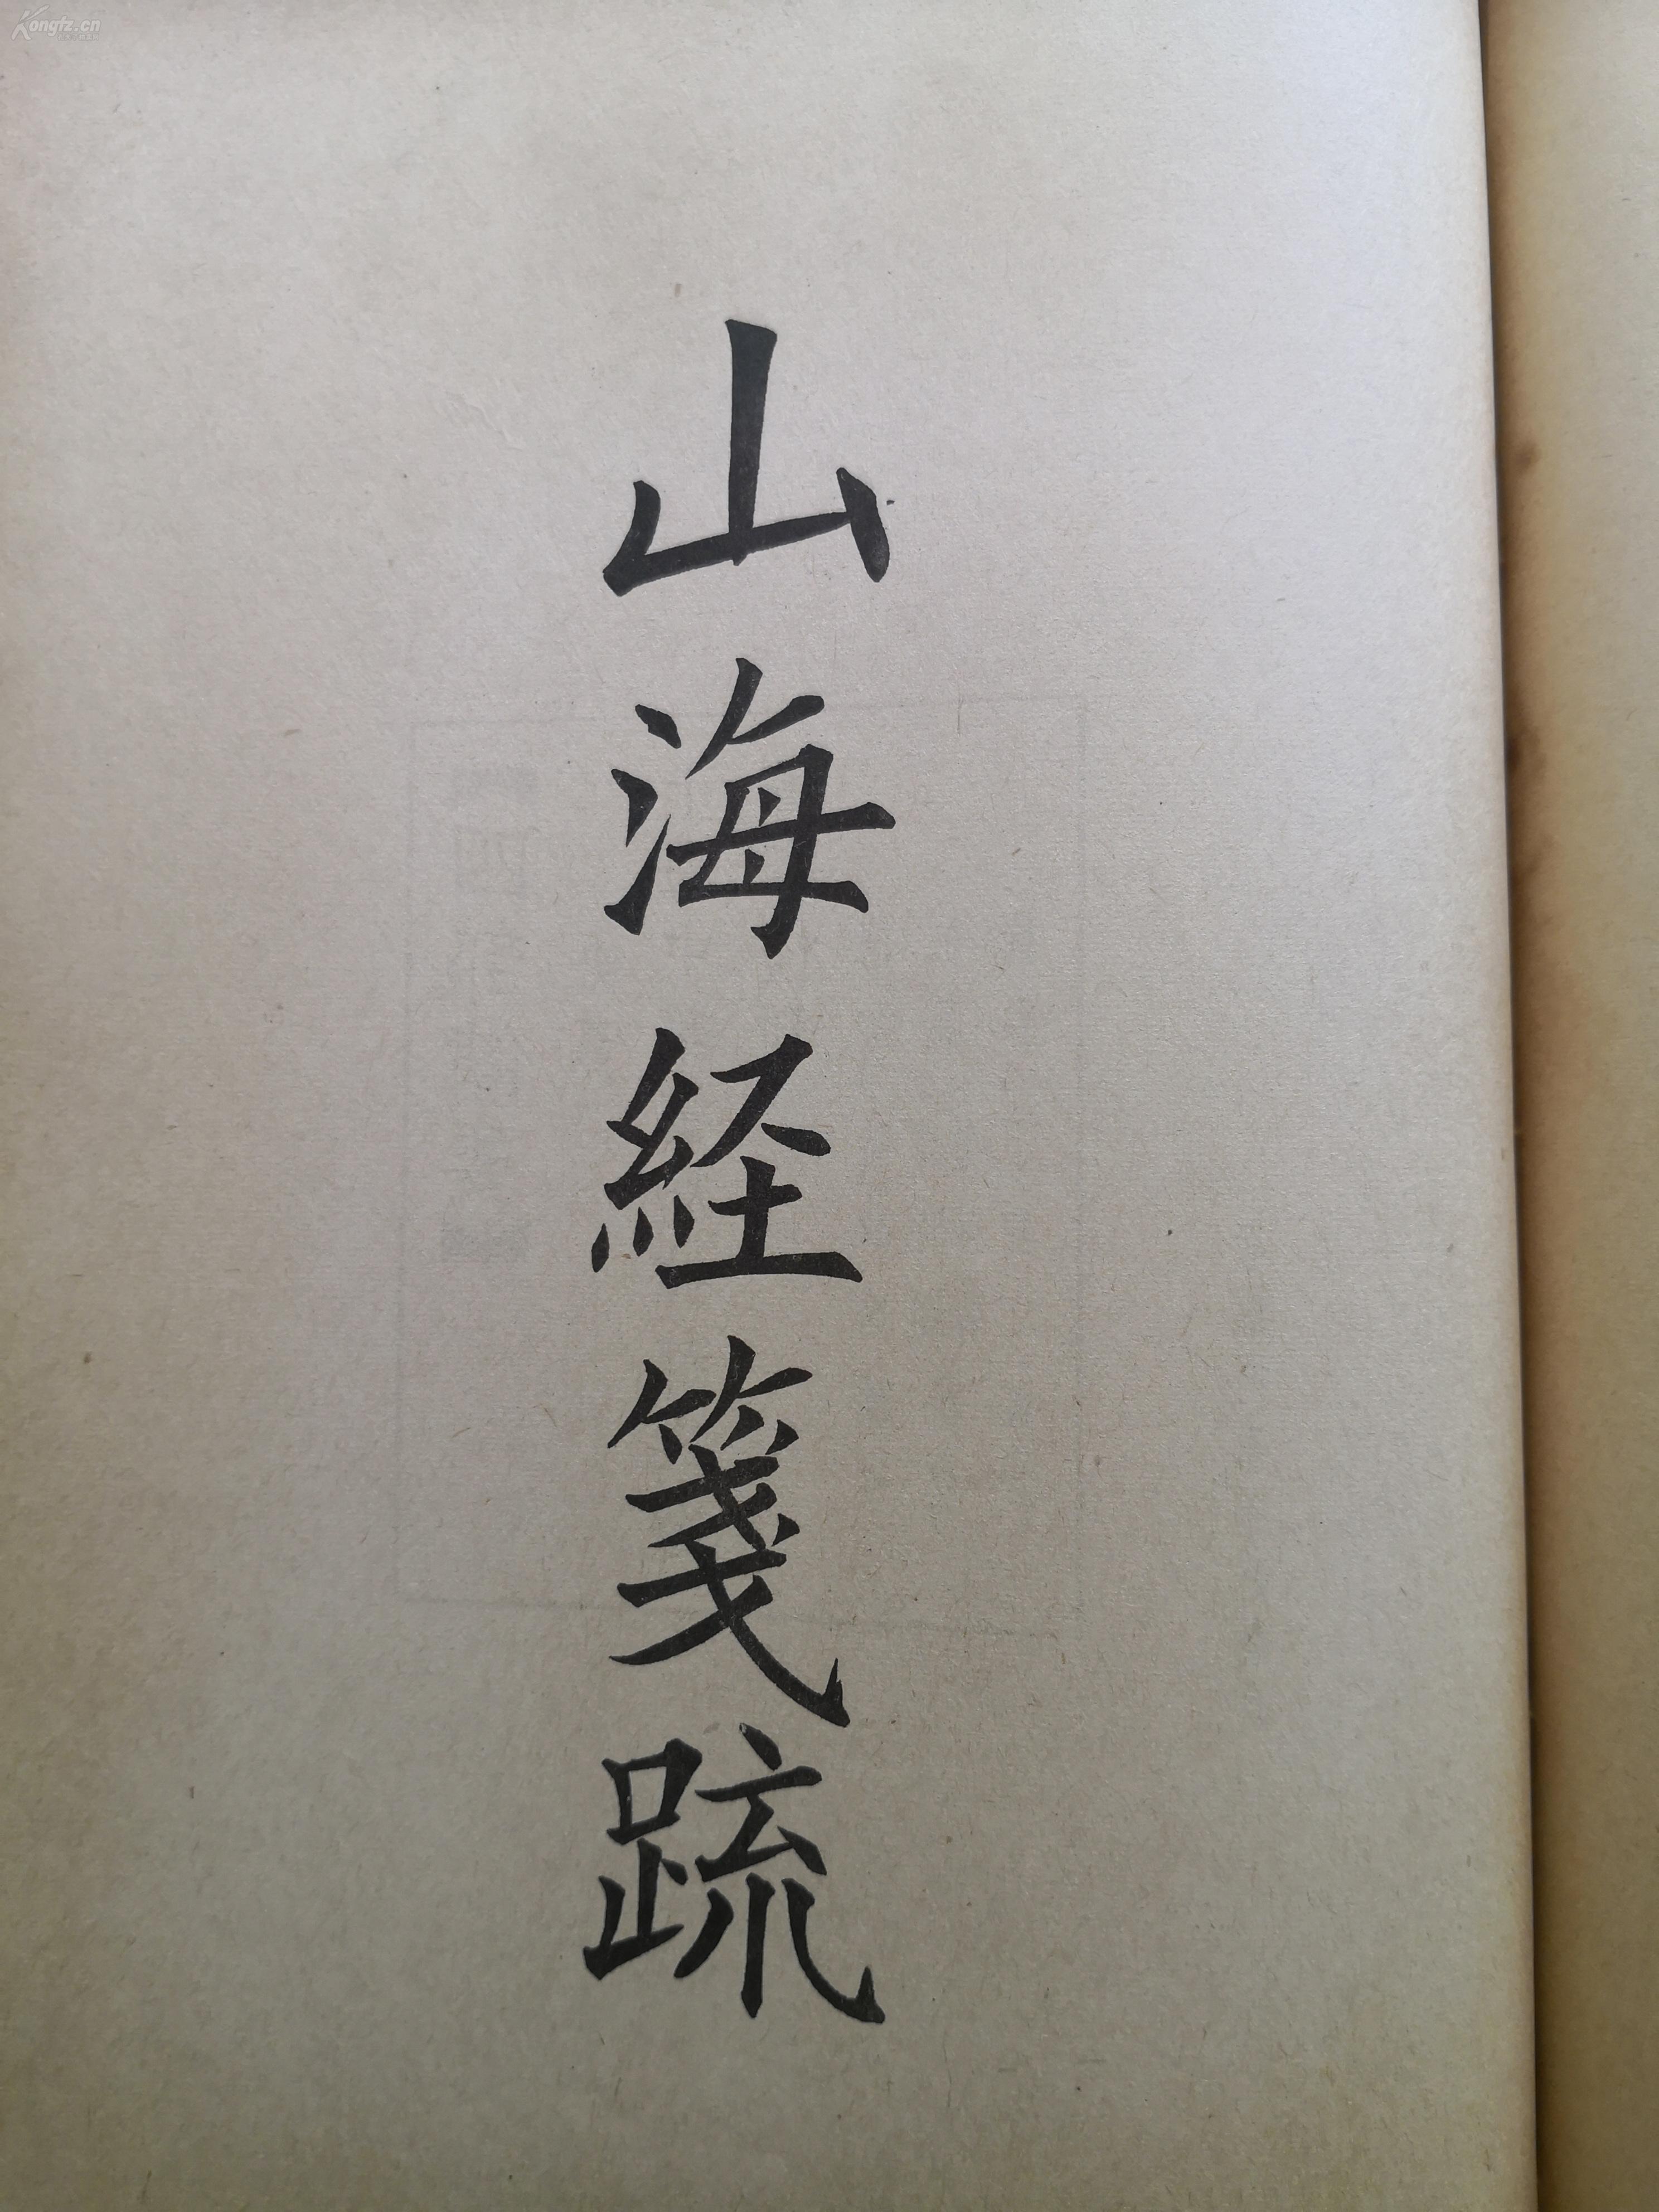 Kongfz.cn
山海経箋䟽